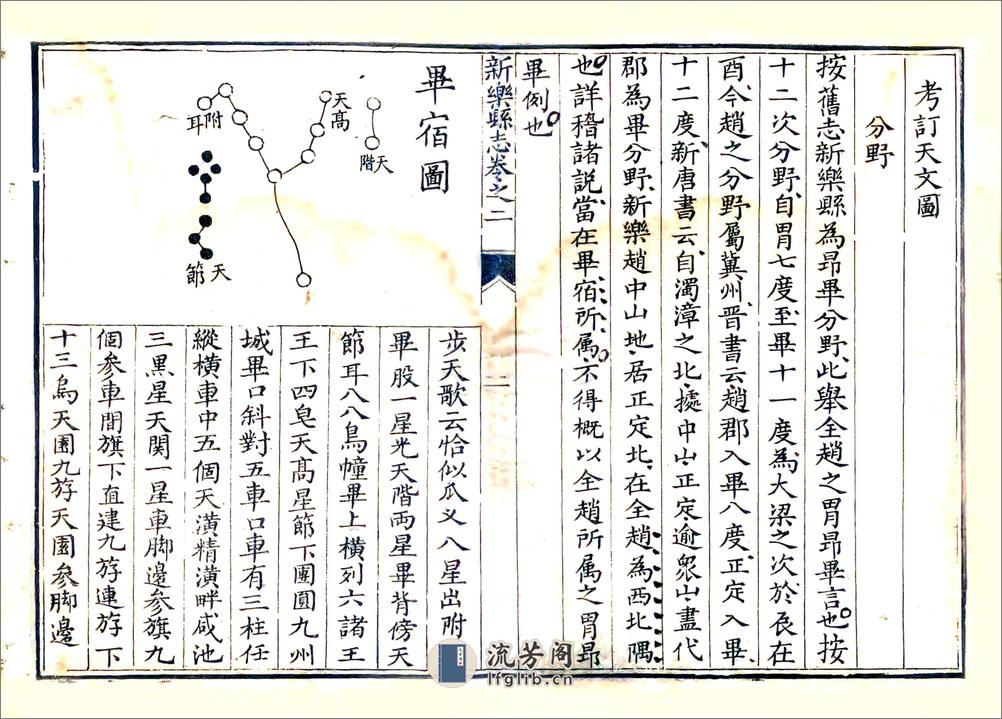 考訂天文圖
分野
按舊志新樂縣為昴畢分野、此舉全趙之胃昴畢言也。按
十二次分野、自胃七度至畢十一度為大梁之次、於辰在
酉、今趙之分野屬冀州、晋書云、趙郡入畢八度、正定入畢
十二度、新唐書云、自濁漳之北、據中山、正定、逾衆山、盡代
郡為畢分野、新樂趙中山地、居正定北、在全趙、為西北隅
也。詳稽諸說、當在畢宿所属。不得概以全趙所属之胃昴
畢例也。
新樂縣志卷之二
二
畢宿圖
附耳
天高
天階
天節
步天歌云恰似爪义八星出附
畢股一星光天階両星畢背傍天
節耳八八烏幢畢上橫列六諸王
王下四皂天高星節下團圓九州
城畢口斜對五車口車有三柱任
縱橫車中五個天潢精潢畔咸池
三黑星天関一星車脚邊參旗九
個參車間旗下直建九斿連斿下
十三烏天園九斿天園參脚邊
流芳阁
lfglib.cn